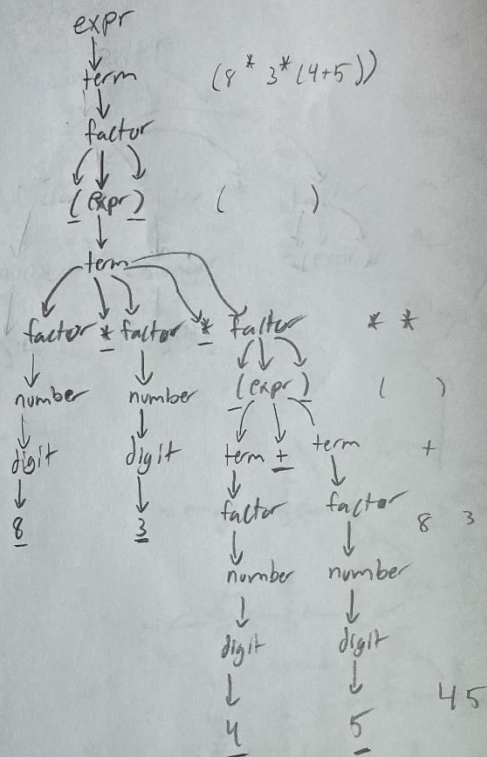 expr
term (8 * 3 * (4+5))
factor
( expr ) ( )
term
factor * factor * factor * *
( expr ) ( )
number number
term + term +
digit digit
factor factor
8 3 8 3
number number
digit digit
4 5 4 5